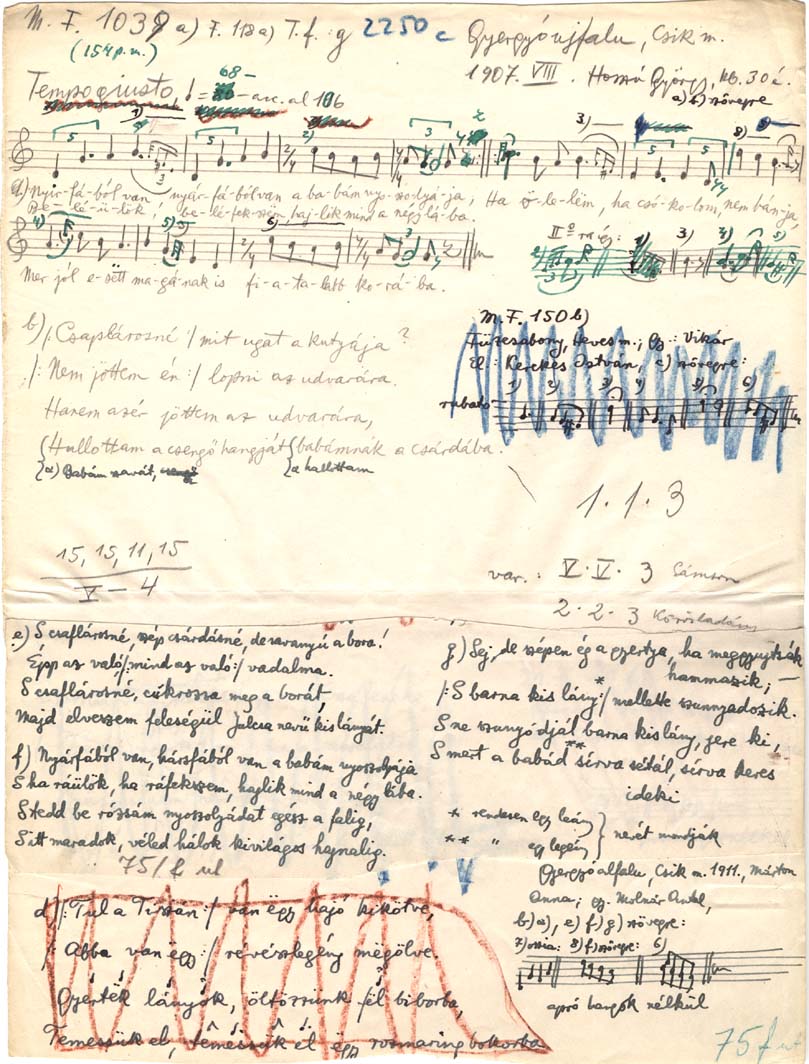 M. F. 1039 a) F. 118a) T. f.: g 2250 c Gyergyóujfalu, Csik m.
(154 p. m.)
1907. VIII. Hosszú György, kb. 30 é.
Tempo giusto, = 68 – acc. al 106
a) b) szövegre
5 1) 5 2) 3 3) 5 5 8)
a.) Nyir-fá-ból van nyár-fá-ból van a ba-bám nyo-szo-lyá-ja; Ha ö-le-lëm, ha csó-ko-lom, nem bán-ja,
Be-lé-ü-lök, be-lé-fek-szem, haj-lik mind a négy lá-ba.
4) 5) 6) 3
II
1) 3) 4) 5)
Mer jól e-sëtt ma-gá-nak is fi-a-ta-labb ko-rá-ba.
b) /: Csaplárosné :/ mit ugat a kutyája?
/: Nem jöttem én :/ lopni az udvarára.
Hanem azér jöttem az udvarára,
Hullottam a csengő hangját babámnák a csárdába.
a) Babám szavát, a hallottam
M. F. 150 b)
Füzesabony, Heves m.; Gy.: Vikár
El.: Kerekes István, c) szövegre:
1) 2) 3) 4) 5) 6)
rubato
1 · 1 · 3
15, 15, 11, 15
V – 4
var.: V · V · 3 Sámson
2 · 2 · 3 Körösladány
e.) S csaflárosné, szép csárdásné, de savanyú a bora!
Épp az való /: mind az való :/ vadalma.
S csaflárosné, cúkrozza meg a borát,
Majd elveszem feleségül Julcsa nevű kis lányát.
f) Nyárfából van, hársfából van a babám nyoszolyája
S ha ráülök, ha ráfekszem, hajlik mind a négy lába.
S tedd be rózsám nyoszolyádat egész a falig,
S itt maradok, véled hálok kivilágos hajnalig.
75/f ul
g) Sej, de szépen ég a gyertya, ha meggyujtsák
hammaszik; –
/: S barna kis lány* :/ mellette szunnyadozik.
S ne szunyódjál barna kis lány, jere ki,
S mert a babád** sírva sétál, sírva keres
ideki
* rendesen egy leány
** " egy legény
nevét mondják
Gyergyóalfalu, Csik m. 1911., Márton
Anna; gy. Molnár Antal,
b) a), e) f) g) szövegre:
7) ossia: 8) f) szövegre: 6)
apró hangok nélkül
d) /: Tul a Tiszan :/ van ëgy hajó kikötve,
/: Abba van ëgy :/ révészlegény mëgölve.
Gyertëk lányok, öltözzünk fël biborba,
Temessük el, temessük el ëgy rozmaring bokorba
75 f